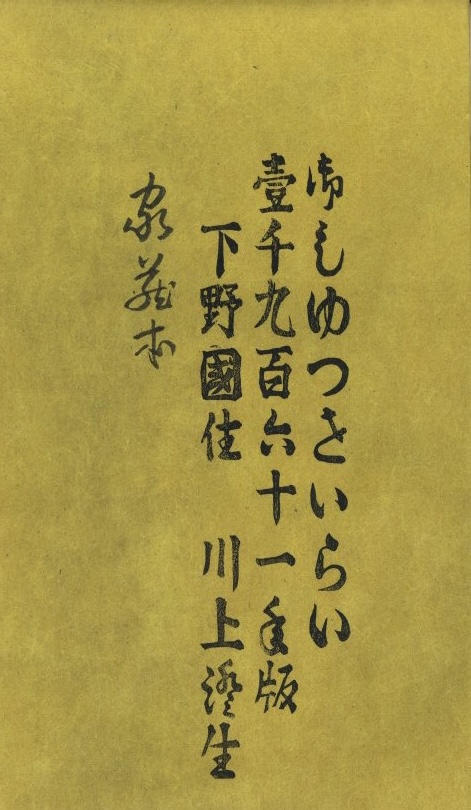 御しゆつさいらい
壹千九百六十一年版
下野國住 川上澄生
家蔵本